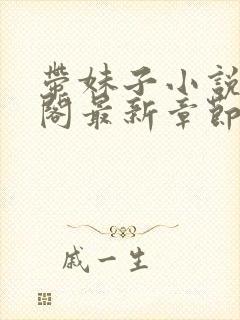 带妹子小說
閣最新章節
戚一生